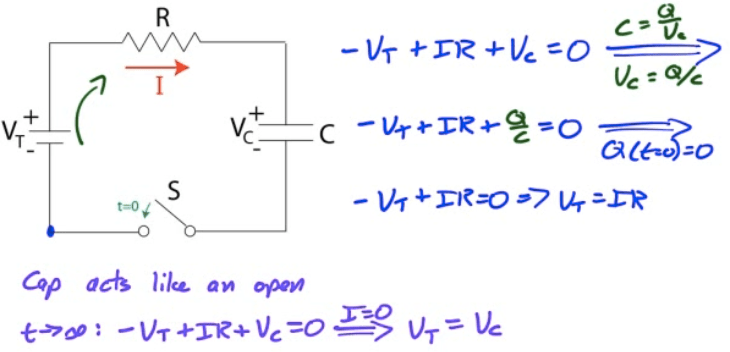 R
I
V_T + -
V_C + -
C
S
t=0
-V_T + IR + V_C = 0 C = Q/V_C ⟹ V_C = Q/C
-V_T + IR + Q/C = 0 ⟹ Q(t=0)=0
-V_T + IR = 0 => V_T = IR
Cap acts like an open
t→∞: -V_T + IR + V_C = 0 I=0 ⟹ V_T = V_C